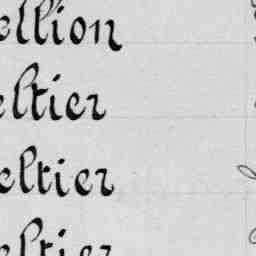 ellion
eltier
eltier
eltier